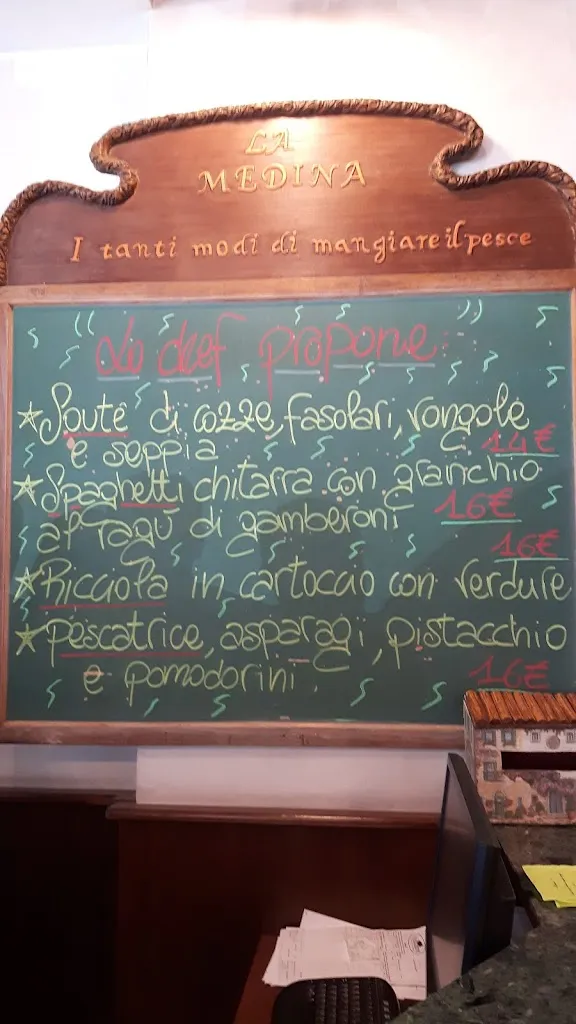 LA
MEDINA
I tanti modi di mangiare il pesce
Lo chef propone
Soutè di cozze, fasolari, vongole
e seppia 14€
Spaghetti chitarra con granchio
al ragù di gamberoni 16€
16€
Ricciola in cartoccio con verdure
Pescatrice, asparagi, pistacchio
e pomodorini. 16€